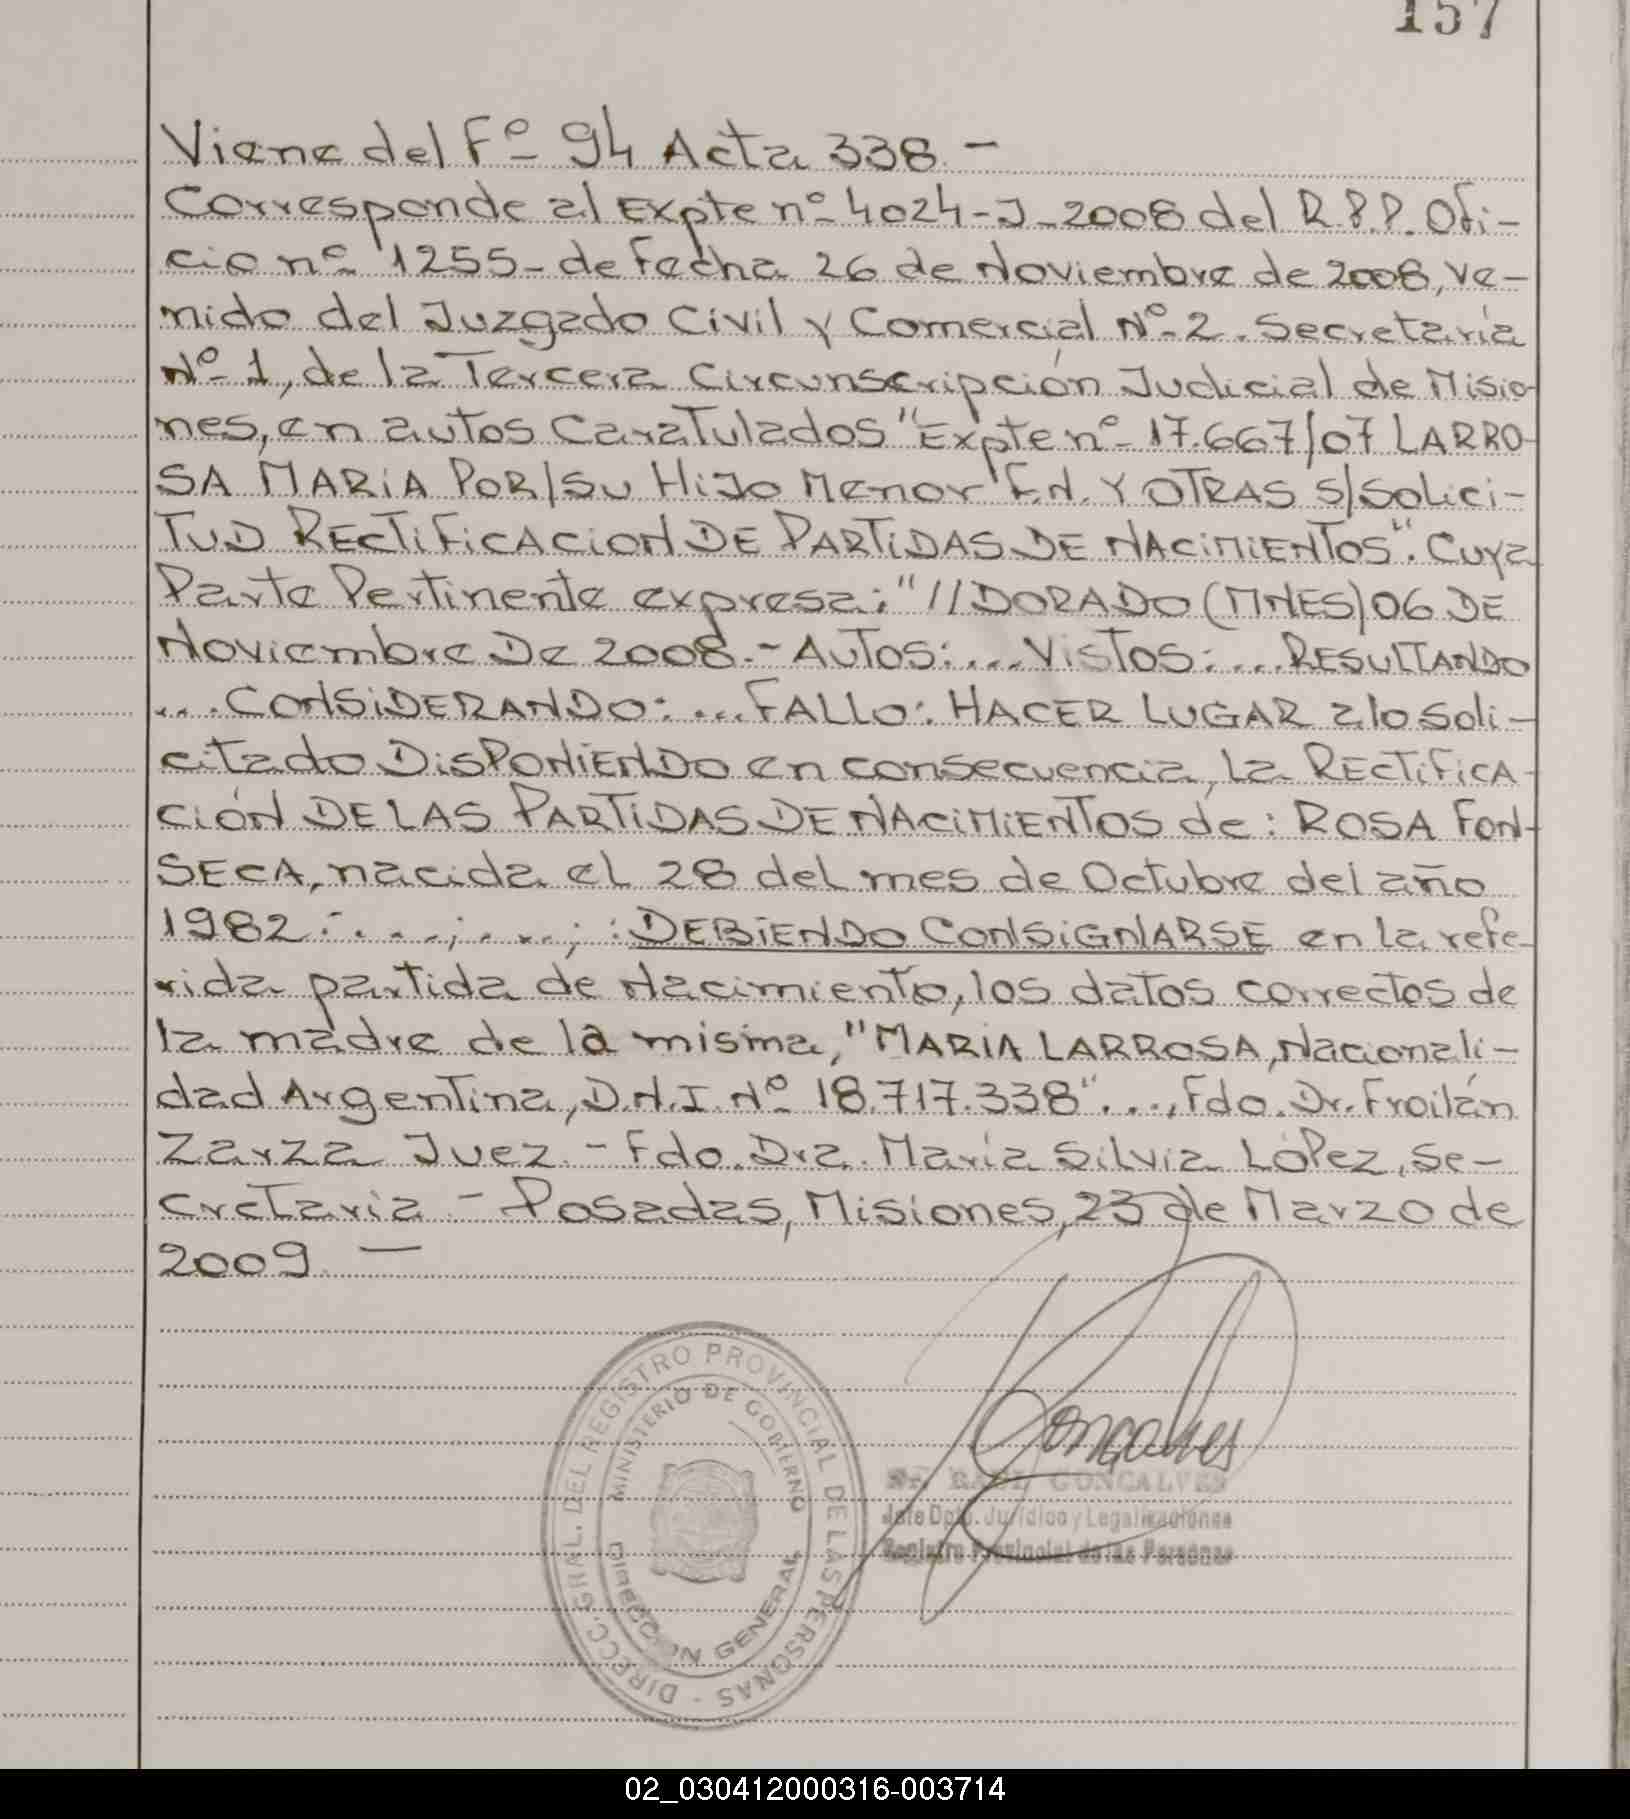 157
Viene del Fº 94 Acta 338.-
Corresponde al Expte nº 4024-J-2008 del R.P.P. Ofi-
cio nº 1255- de Fecha 26 de Noviembre de 2008, ve-
nido del Juzgado Civil y Comercial Nº 2. Secretaría
Nº 1, de la Tercera Circunscripción Judicial de Misio-
nes, en autos Caratulados "Expte nº 17.667/07 LARRO-
SA MARIA POR/SU HIJO Menor F.N. Y OTRAS S/SOLICI-
TUD RECTIFICACION DE PARTIDAS DE NACIMIENTOS". Cuya
Parte Pertinente expresa: "//DORADO (MNES) 06 DE
Noviembre De 2008.- AUTOS: ... VISTOS: ... RESULTANDO
... CONSIDERANDO: ... FALLO: HACER LUGAR a lo soli-
citado DISPONIENDO en consecuencia, la RECTIFICA-
CIÓN DE LAS PARTIDAS DE NACIMIENTOS de: ROSA FON-
SECA, nacida el 28 del mes de Octubre del año
1982 : ....; ....; : DEBIENDO CONSIGNARSE en la refe-
rida partida de Nacimiento, los datos correctos de
la madre de la misma, "MARIA LARROSA, Nacionali-
dad Argentina, D.N.I. Nº 18.717.338" ..., Fdo. Dr. Froilán
Zarza Juez.- Fdo. Dra. María Silvia López, Se-
cretaria - Posadas, Misiones, 23 de Marzo de
2009. —
DIRECC. GRAL. DEL REGISTRO PROVINCIAL DE LAS PERSONAS -
MINISTERIO DE GOBIERNO
DIRECCION GENERAL
Gonçalves
Sr. RAUL GONCALVES
Jefe Dpto. Jurídico y Legalizaciones
Registro Provincial de las Personas
02_030412000316-003714